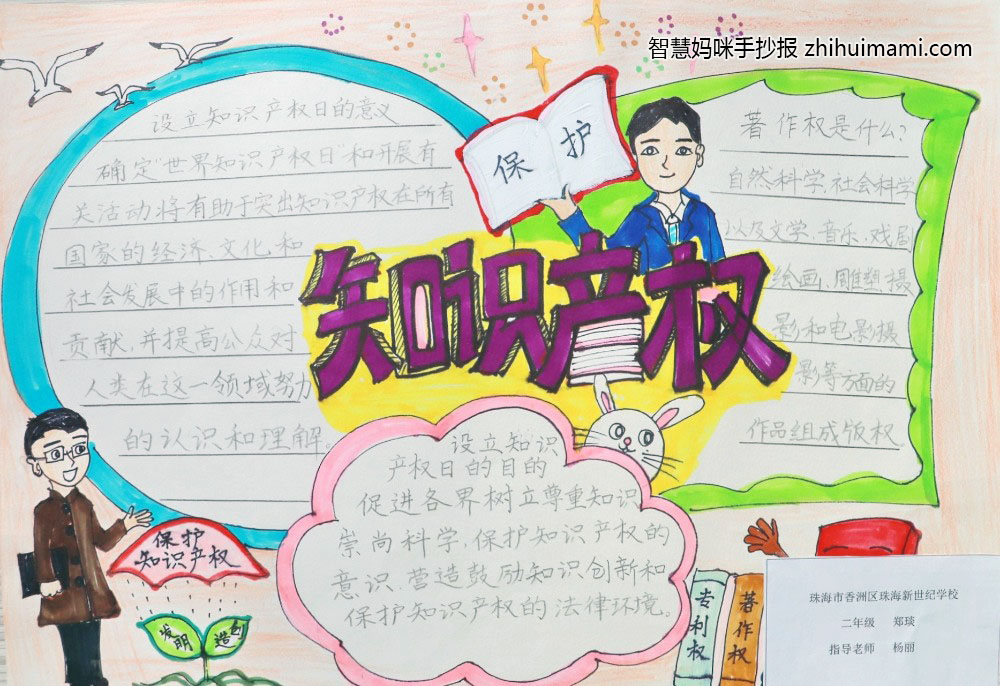 智慧妈咪手抄报 zhihuimami.com
设立知识产权日的意义
确定"世界知识产权日"和开展有
关活动将有助于突出知识产权在所有
国家的经济、文化、和
社会发展中的作用和
贡献,并提高公众对
人类在这一领域努力
的认识和理解。
保护
知识产权
著作权是什么?
自然科学、社会科学
以及文学、音乐、戏剧
绘画、雕塑、摄
影和电影摄
影等方面的
作品组成版权
设立知识
产权日的目的
促进各界树立尊重知识
崇尚科学,保护知识产权的
意识.营造鼓励知识创新和
保护知识产权的法律环境。
保护
知识产权
发明
创造
专利权
著作权
珠海市香洲区珠海新世纪学校
二年级 郑琰
指导老师 杨丽